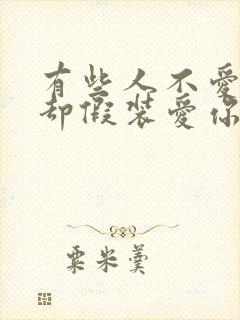 有些人不愛
却假裝愛你
粟米羹